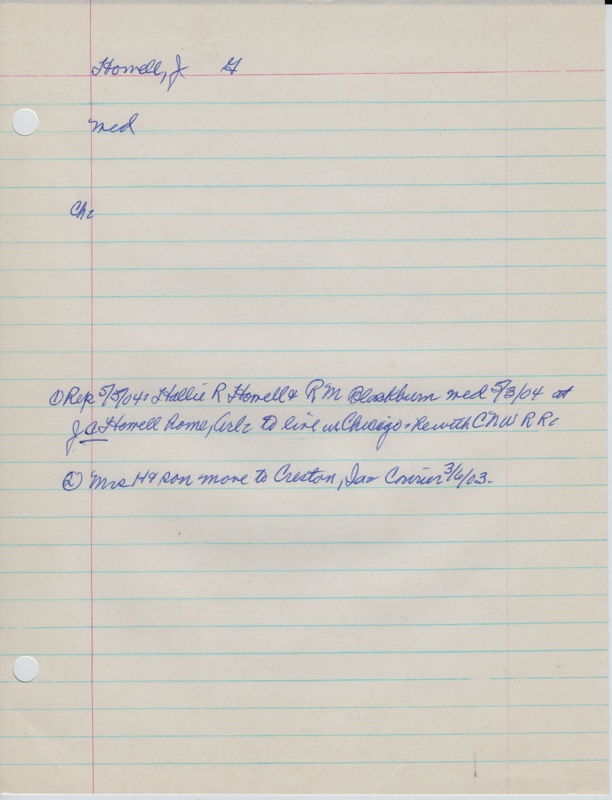 Howell, J G
med
Ch:
① Rep 5/5/04: Hallie R Howell & R M Blackburn med 5/3/04 at
J A Howell home, to live in Chicago. He with C N W R R.
② Mrs H & son move to Creston, Ia - Courier 3/6/03.